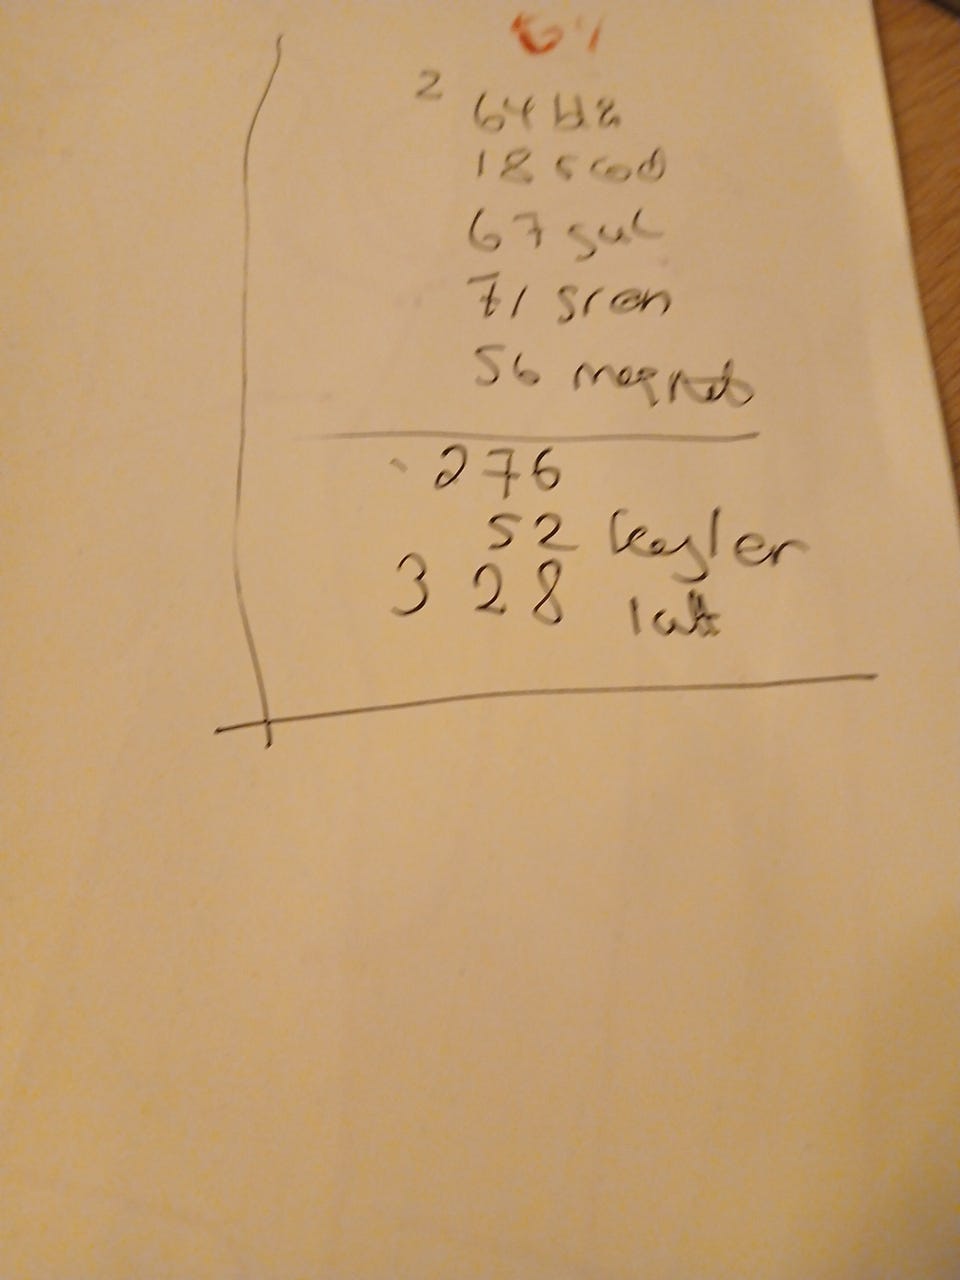 64
2
64 blå
18
67 gul
71 grøn
56 magnet
276
52 kegler
328 ialt